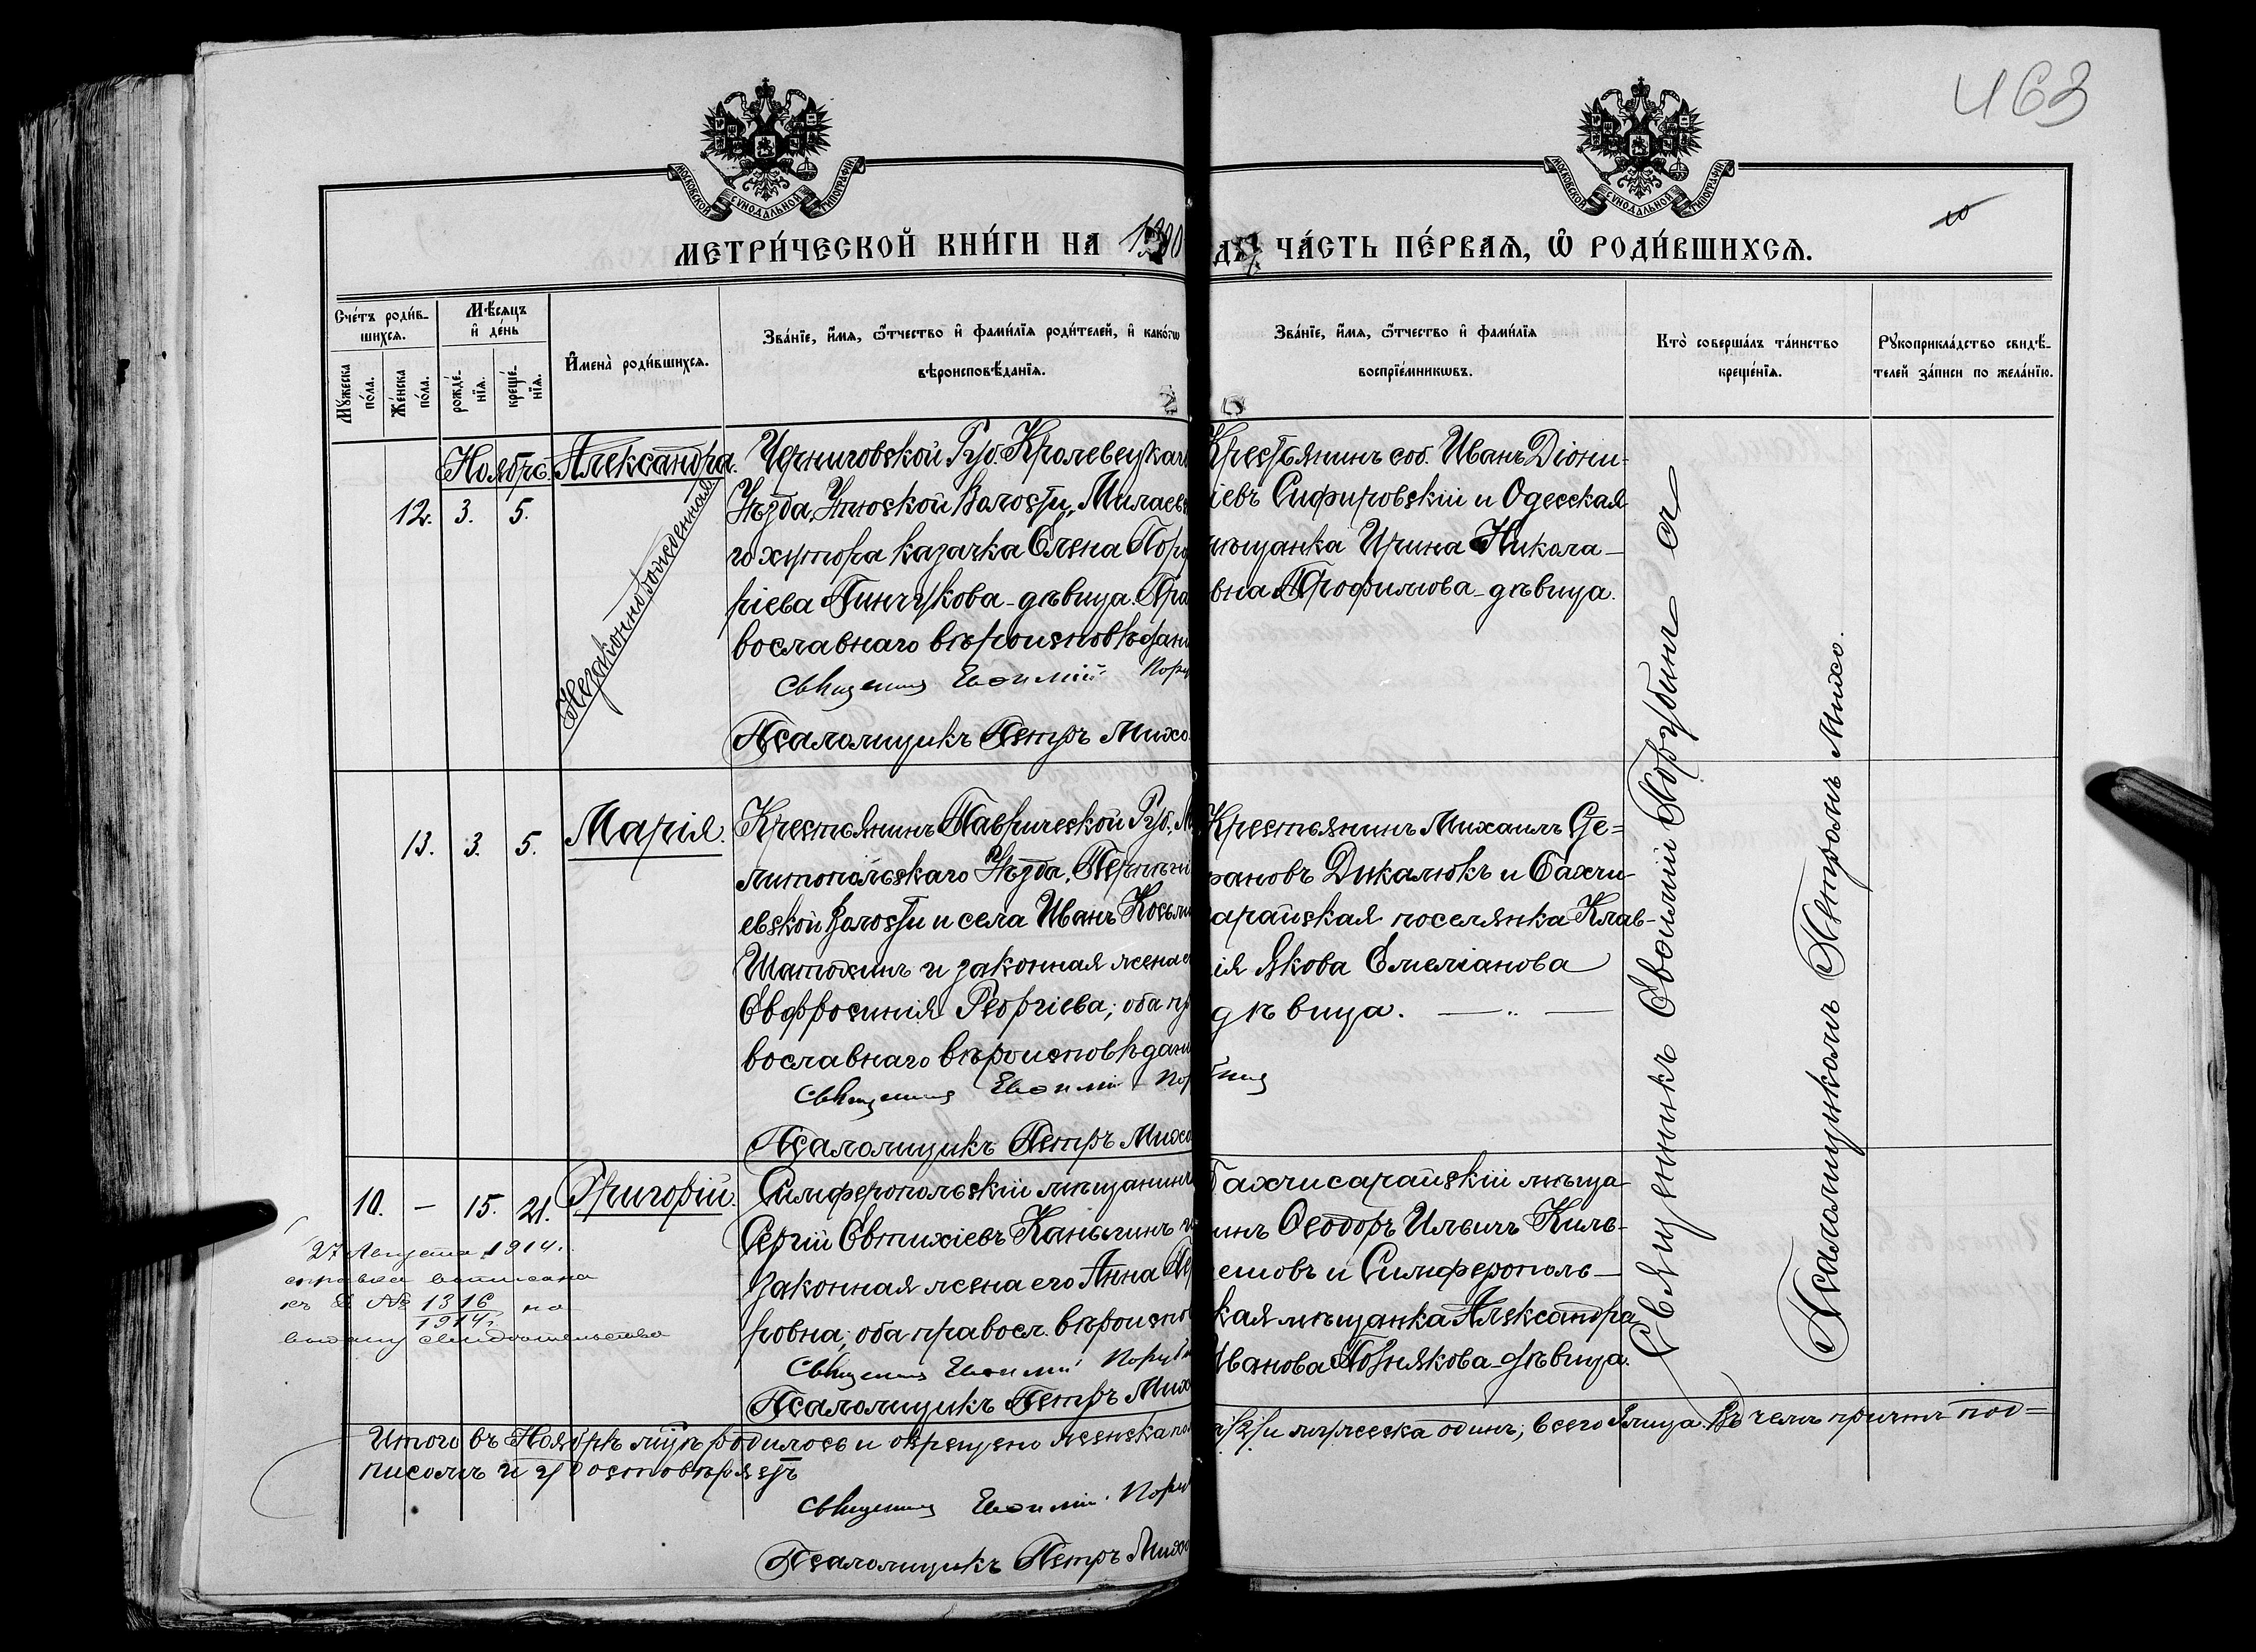 463
МОСКОВСКОЙ СѴНОДАЛЬНОЙ ТИПОГРАФІИ
МОСКОВСКОЙ СѴНОДАЛЬНОЙ ТИПОГРАФІИ
МЕТРИ́ЧЕСКОЙ КНИ́ГИ НА 1900
ЧА́СТЬ ПЕ́РВАѦ, Ѡ҆ РОДИ́ВШИХСѦ.
Сче́тъ роди́в-
шихсѧ.
Мꙋ́жеска
по́ла.
Же́нска
по́ла.
Мѣ́сѧцъ
и҆ де́нь
рожде́-
нїѧ.
креще́-
нїѧ.
И҆мена̀ роди́вшихсѧ.
Зва́нїе, и҆́мѧ, ѻ҆́тчество и҆ фами́лїѧ роди́телей, и҆ како́гѡ
вѣроисповѣ́данїѧ.
Зва́нїе, и҆́мѧ, ѻ҆́тчество и҆ фами́лїѧ
воспрїе́мникѡвъ.
Кто̀ соверша́лъ та́инство
креще́нїѧ.
Рꙋкоприкла́дство свидѣ́-
телей за́писи по жела́нїю.
Ноябрь.
12. 3. 5.
Александра.
Незаконнорожденная
Черниговской Губ. Кролевецкаго
Уѣзда, Волости, Милаевска
го хутора казачка Елена Порфи
ріева Пинчукова - дѣвица. Пра
вославнаго вѣроисповѣдані
Священникъ Евѳимій Пору
Псаломщикъ Петръ Михо
Крестьянинъ соб. Иванъ Діони-
іевъ Сифировскій и Одесская
мѣщанка Ирина Никола-
вна Трофимова - дѣвица.
13. 3. 5.
Марія.
Крестьянинъ Таврической Губ. М
литопольскаго Уѣзда,
евской Волости и села Иванъ Косьми
Шатохинъ и законная жена е
Евфросинія Георгіева; оба пр
вославнаго вѣроисповѣдані
Священникъ Евѳимій Пор
Псаломщикъ Петръ Михо
Крестьянинъ Михаилъ Сте=
фановъ Дикалюкъ и Бахчи-
сарайская поселянка Клав-
ія Якова Емеліанова
дѣвица.
Священникъ Евѳимій Порубинъ съ
Псаломщикомъ Петромъ Михо.
10. - 15. 21.
Григорій.
Симферопольскій мѣщанинъ
Сергій Евтихіевъ Каныгинъ и
законная жена его Анна Пет
ровна; оба правосл. вѣроиспов
Священникъ Евѳимій Поруби
Псаломщикъ Петръ Михо
Бахчисарайскій мѣща-
инъ Ѳеодоръ Ильичъ Киль-
ешовъ и Симферополь-
кая мѣщанка Александра
Иванова Познякова - дѣвица.
27 Августа 1914 г.
справка выписана
къ № 1316
1914 г.
на
выдачу свидѣтельства
Итого въ Ноябрѣ м-цѣ родилось и окрещено женска пол
/2/ и мужеска одинъ; всего 3 лица. Въ чемъ причтъ под=
писомъ и удостовѣряетъ
Священникъ Евѳимій Пору
Псаломщикъ Петръ Михо